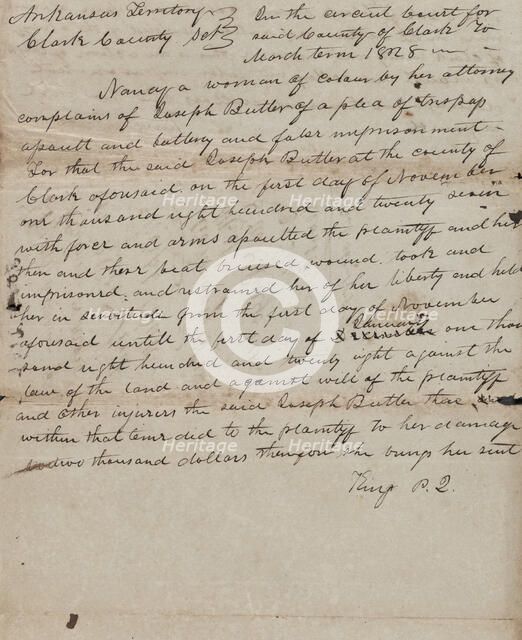 Arkansas Territory } In the circuit Court for
Clark County Sct } said County of Clark To
March term 1828
Nancy a woman of colour by her attorney
complains of Joseph Butler of a plea of trespap
apault and battery and false imprisonment.
For that the said Joseph Butler at the county of
Clark aforesaid on the first day of November
one thousand eight hundred and twenty seven
with force and arms apaulted the plaintiff and her
then and there beat, bruised, wound, took and
imprisoned, and restrained her of her liberty and held
her in servitude from the first day of November
aforesaid untill the first day of January one thou
sand eight hundred and twenty eight against the
law of the land and against will of the plaintiff
and other injurers the said Joseph Butler then
within that time did to the plaintiff to her damage
two thousand dollars therefore she brings her suit
King P.Q.
Heritage Heritage
Heritage Heritage
Heritage Heritage
©